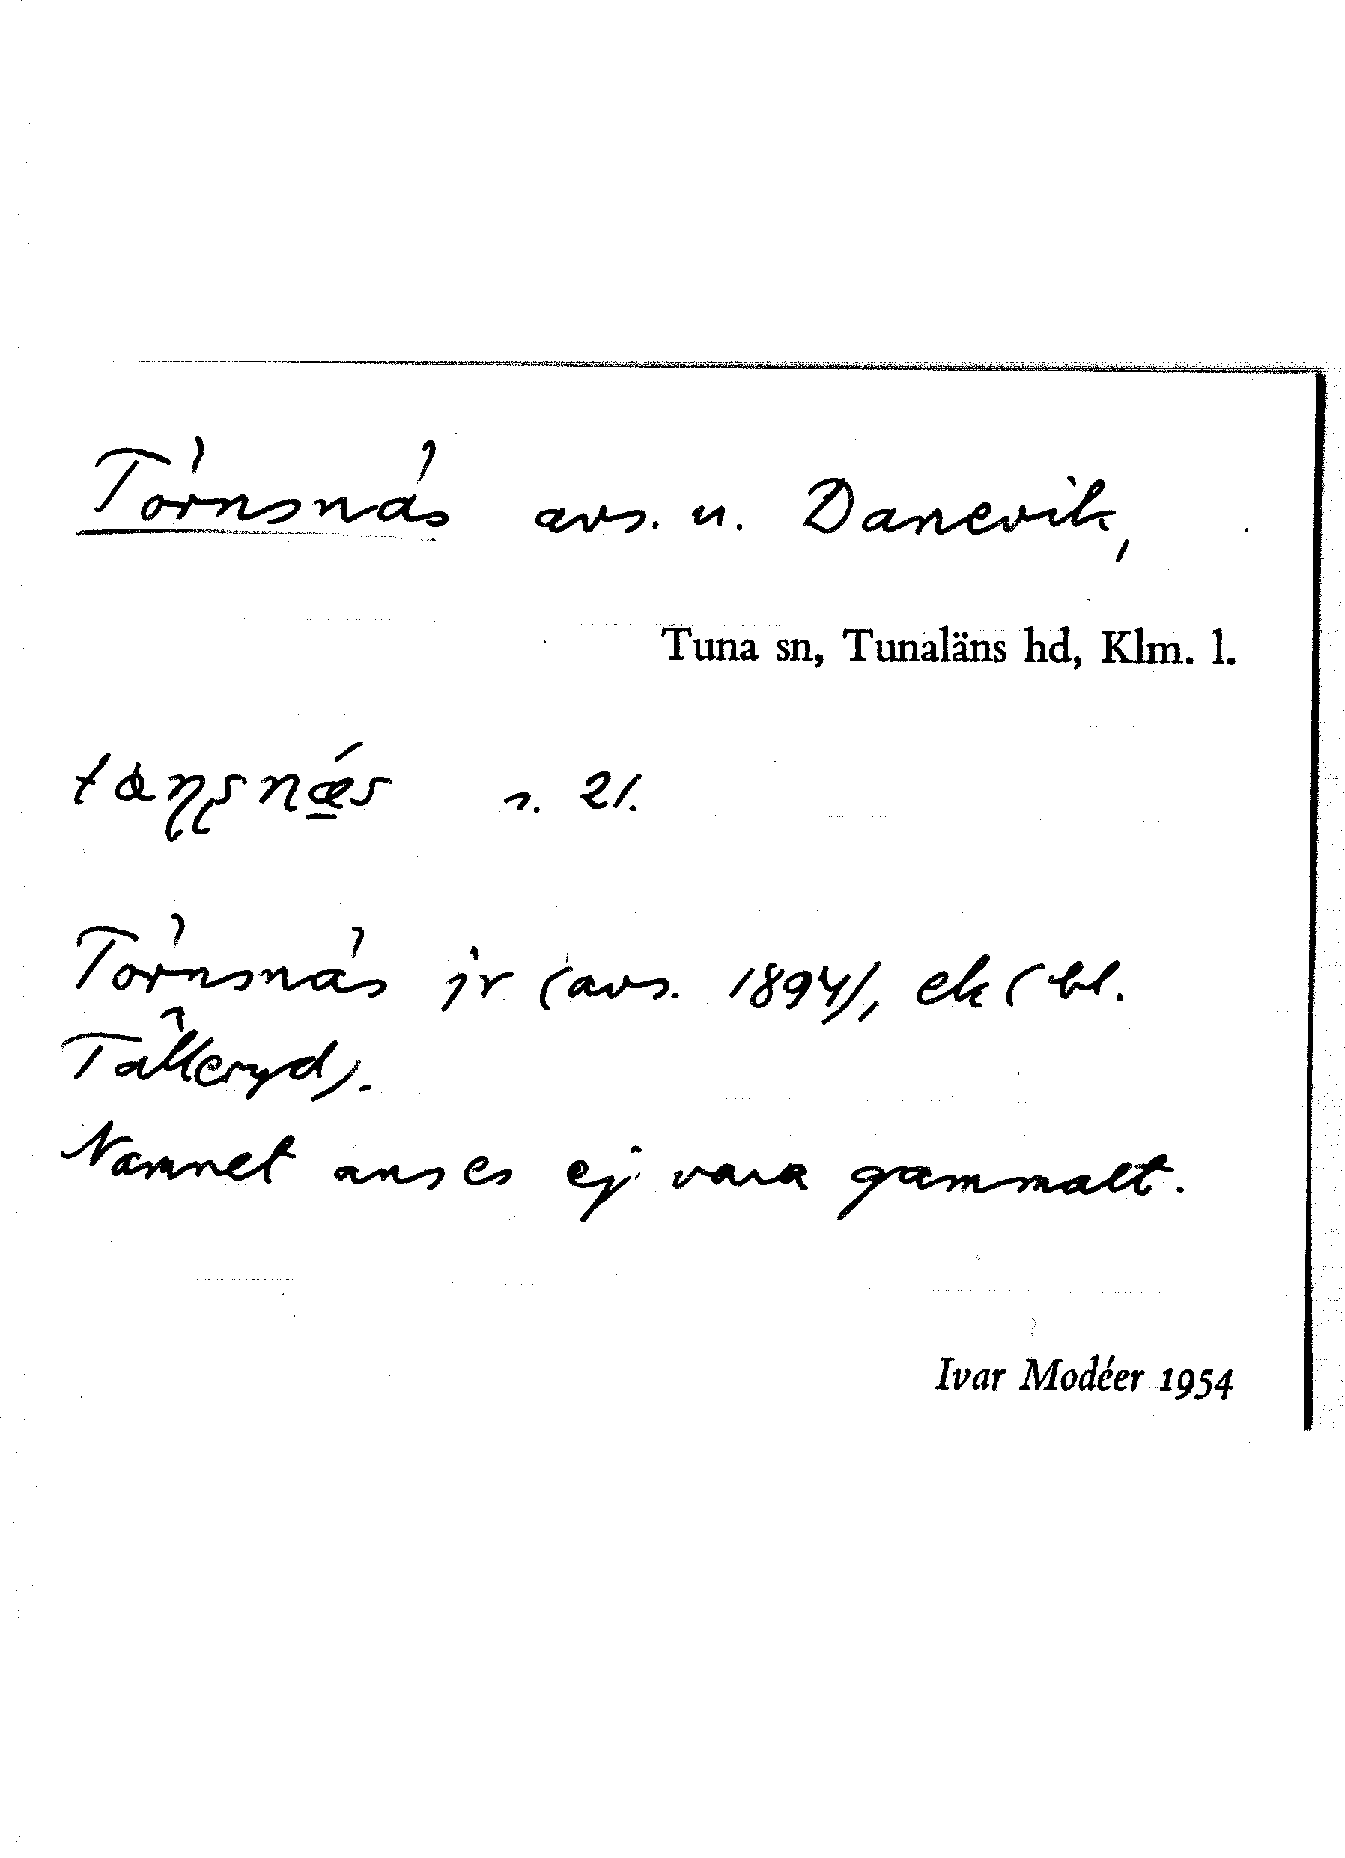 Törnsnäs avs. u. Danevik,
Tuna sn, Tunaläns hd, Klm. l.
s. 21.
Törnsnäs jr (avs. 1894), ek (bl.
Tålleryd).
Namnet anses ej vara gammalt.
Ivar Modéer 1954